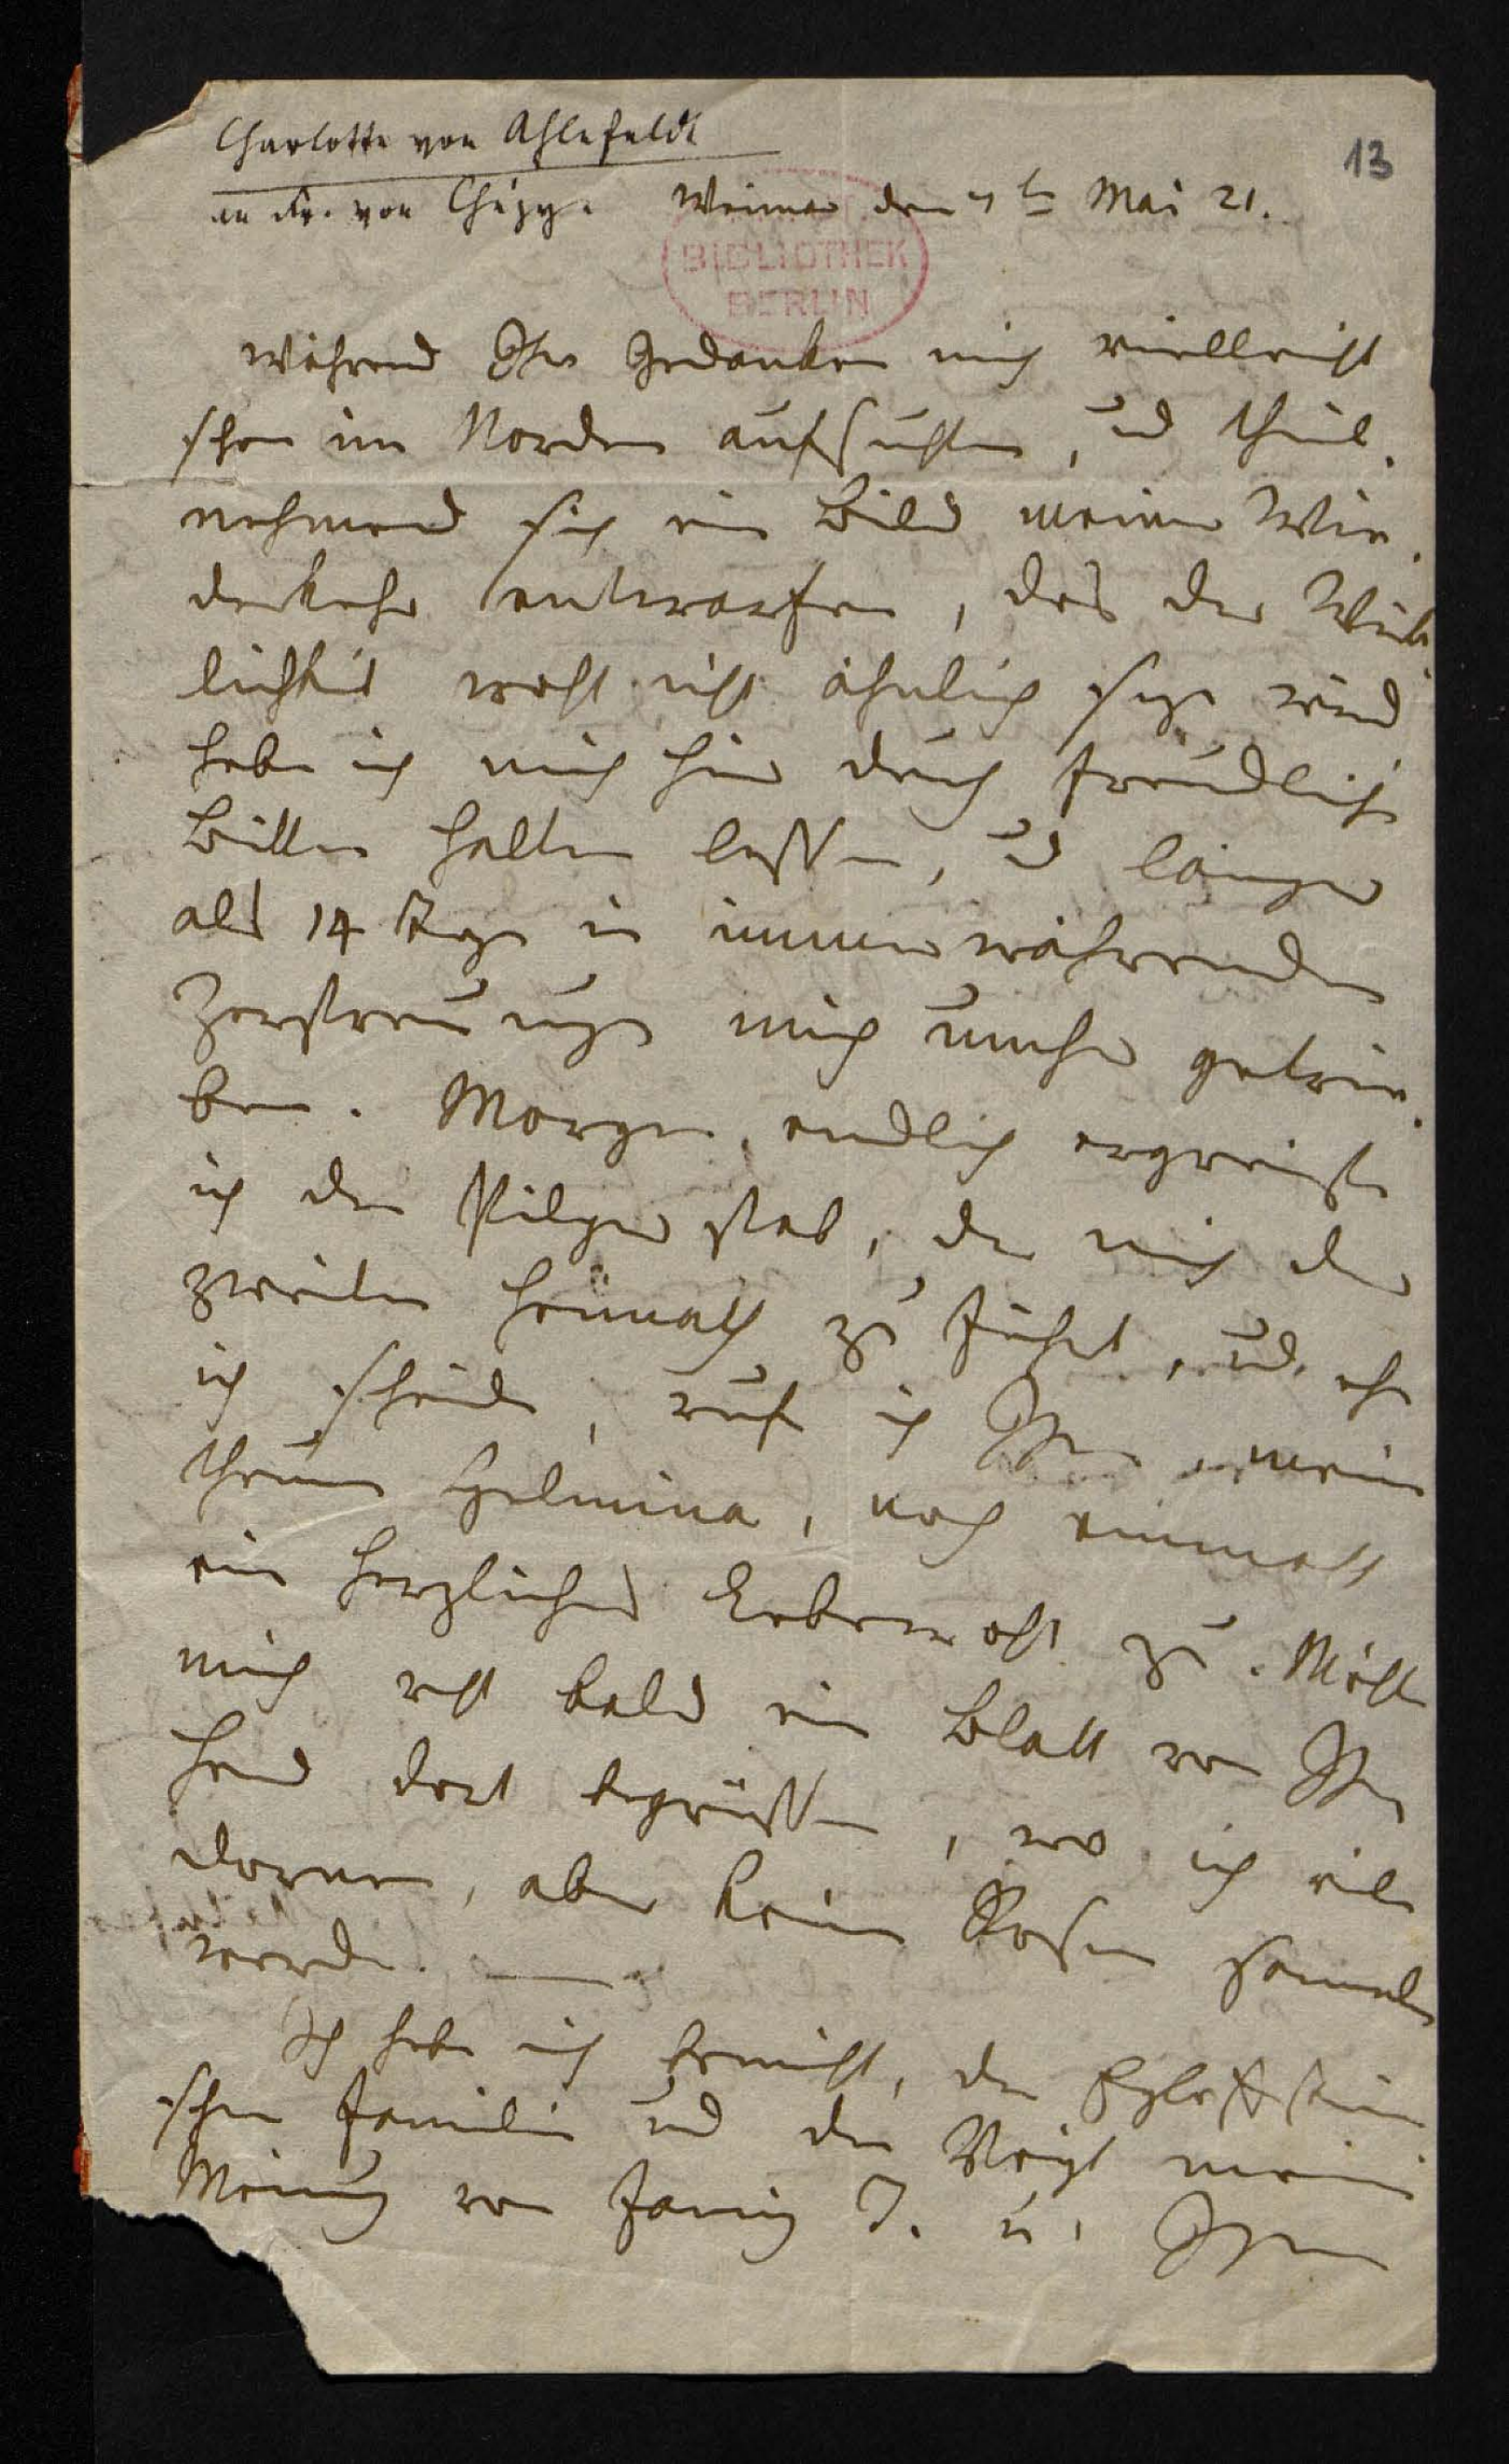 Charlotte von Ahlefeldt
13
an Fr. von Chézy.
Weimar den 4ten Mai 21.
BIBLIOTHEK
BERLIN
Während Ihre Gedanken mich vielleicht
schon im Norden aufsuchten, und theil-
nehmend sich ein Bild meiner Wie-
derkehr entwarfen, das der Wirk-
lichkeit wohl nicht ähnlich seyn wird
habe ich mich hier durch freundliche
Bitten halten lassen, und länger
als 14 Tage in immerwährenden
Zerstreuungen mich umher getrie-
ben. Morgen endlich ergreife
ich den Pilgerstab, der mich der
zweiten Heimath zu führt, und ehe
ich scheide, rufe ich Ihnen, meine
theure Helmina, noch einmahl
ein herzliches Lebewohl zu. Möchte
mich recht bald ein Blatt von Ihrer
Hand dort begrüssen, wo ich viele
Dornen, aber keine Rosen sammeln
werde. —
Ich habe mich bemüht, der Egloffstein
schen Familie und der Voigt meine
Meinung von Fanny T. u. Ihrem